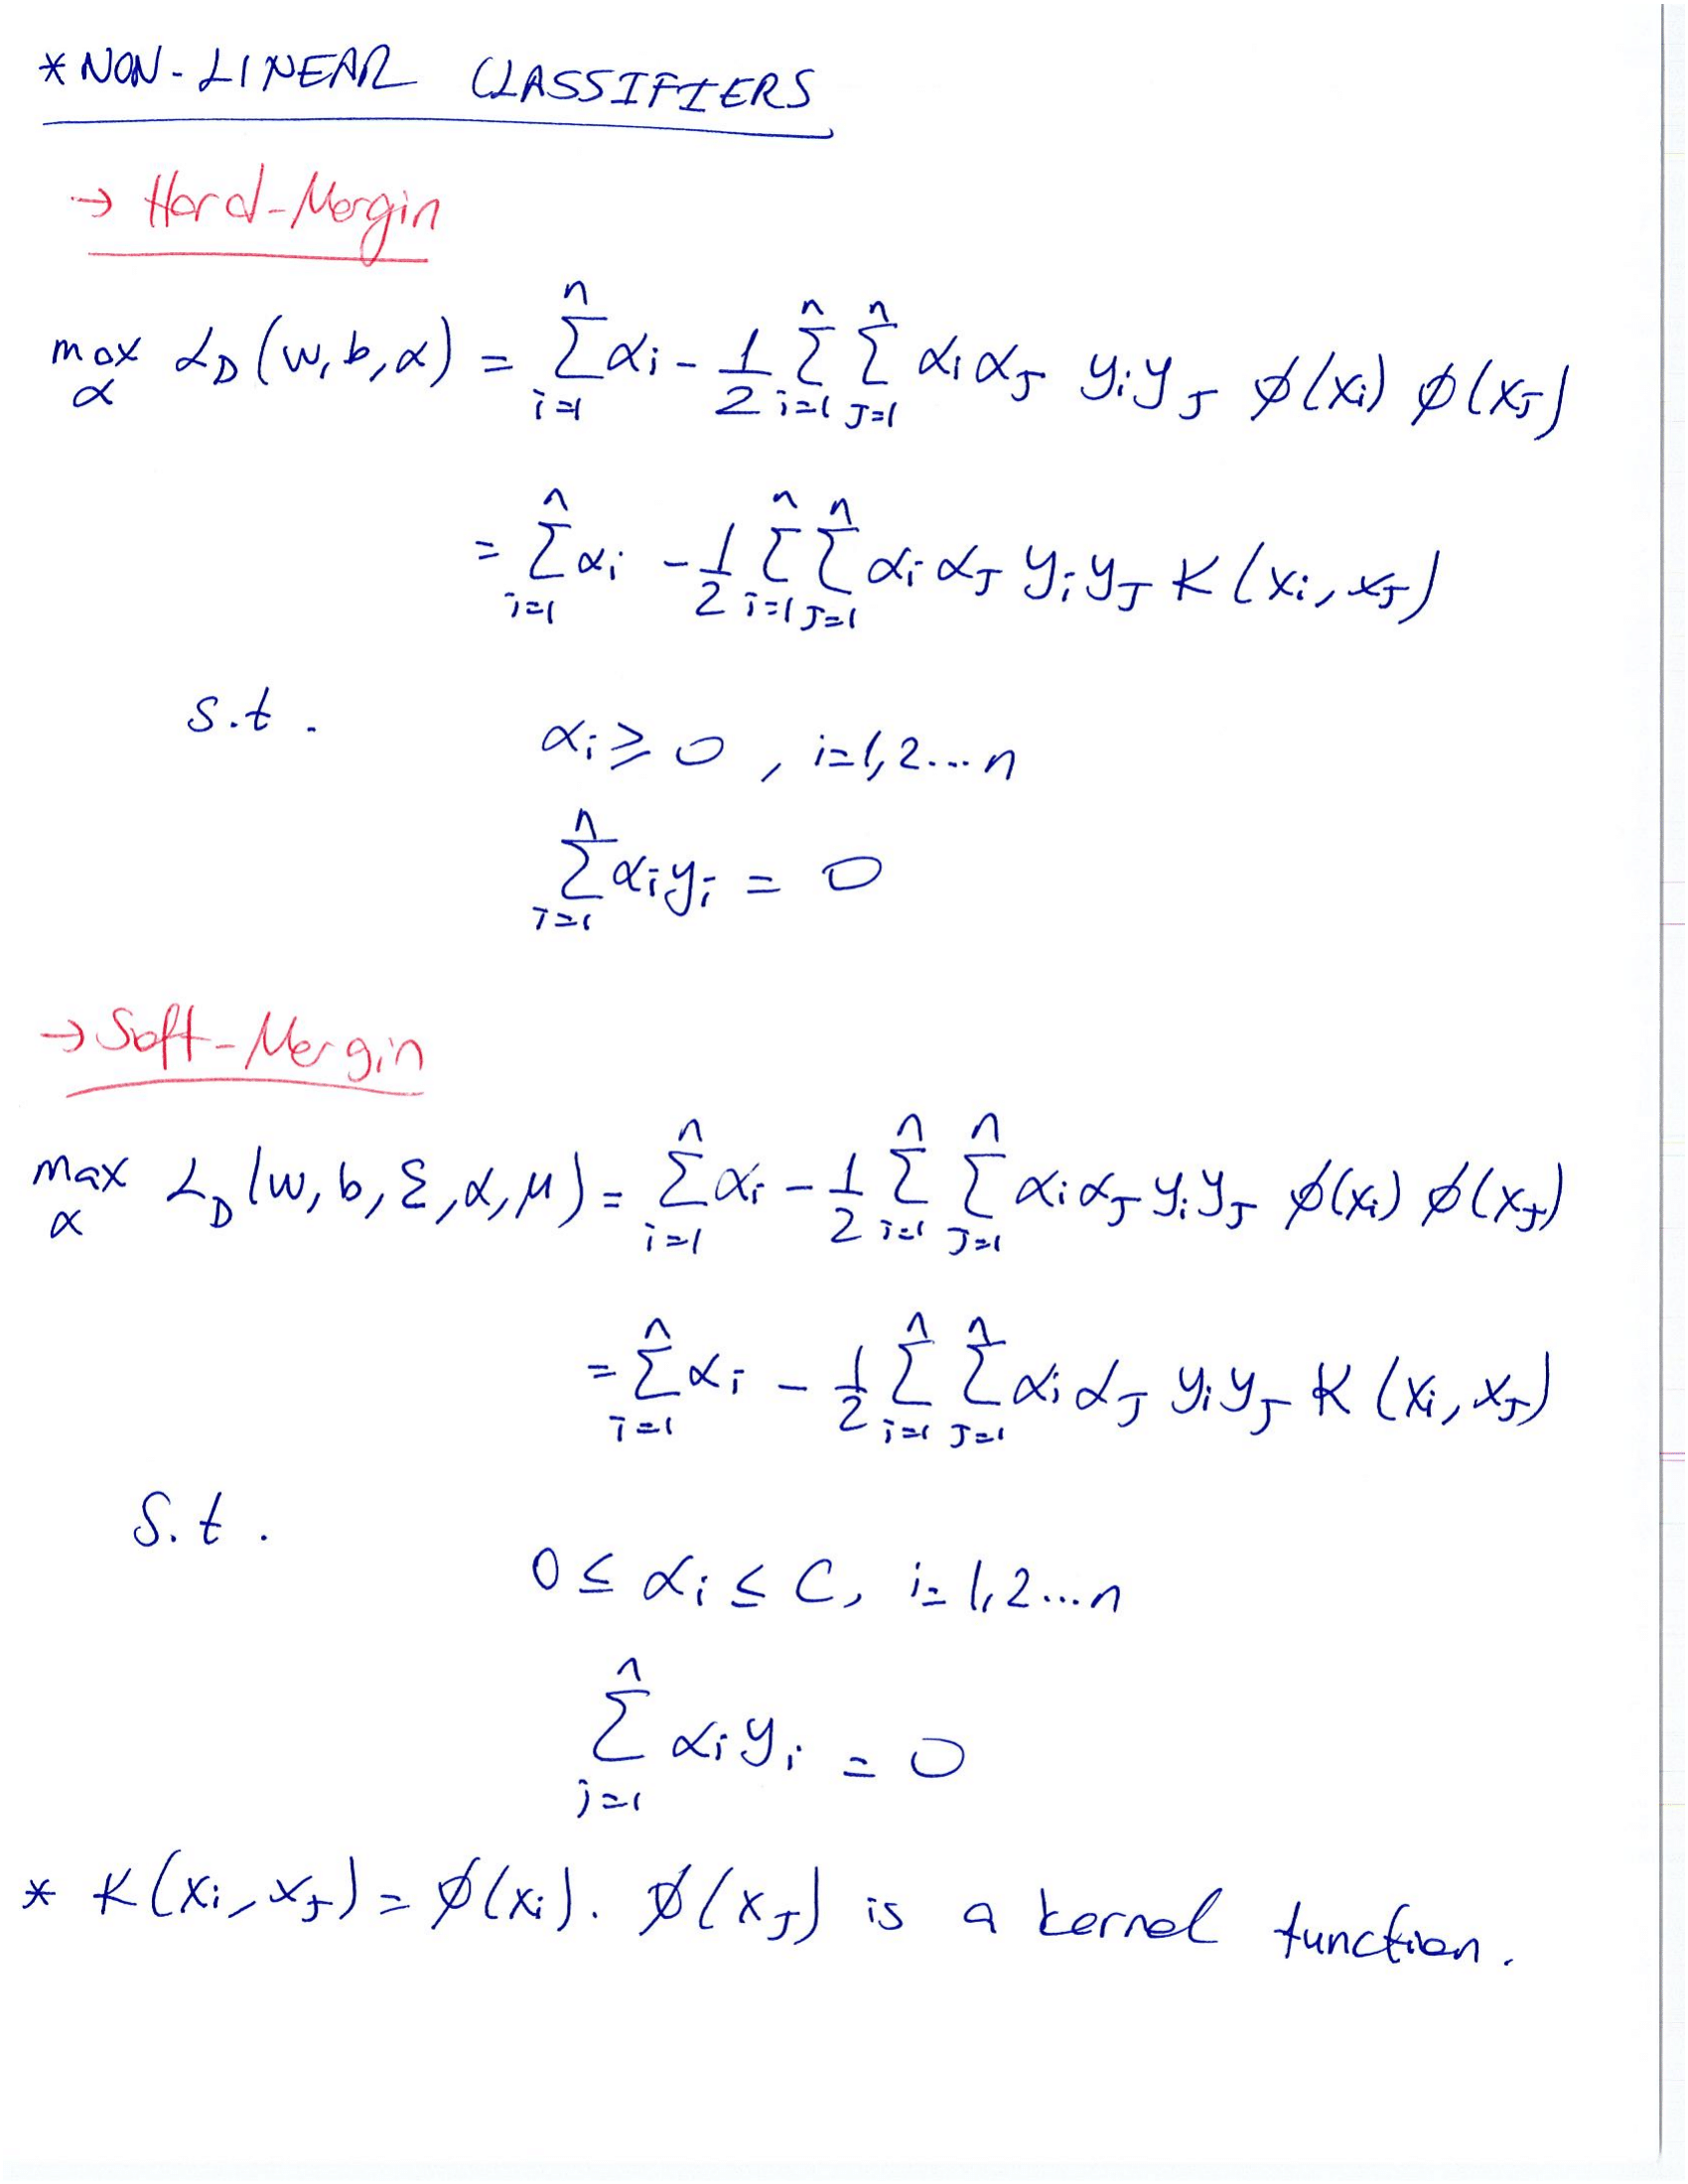 * NON-LINEAR CLASSIFIERS
→ Hard-Margin
max_α L_D(w,b,α) = ∑_{i=1}^{n} α_i - 1/2 ∑_{i=1}^{n} ∑_{J=1}^{n} α_i α_J y_i y_J ϕ(x_i) ϕ(x_J)
= ∑_{i=1}^{n} α_i - 1/2 ∑_{i=1}^{n} ∑_{J=1}^{n} α_i α_J y_i y_J K(x_i, x_J)
s.t.
α_i ≥ 0, i=1,2...n
∑_{i=1}^{n} α_i y_i = 0
→ Soft-Margin
max_α L_D(w,b,ξ,α,μ) = ∑_{i=1}^{n} α_i - 1/2 ∑_{i=1}^{n} ∑_{J=1}^{n} α_i α_J y_i y_J ϕ(x_i) ϕ(x_J)
= ∑_{i=1}^{n} α_i - 1/2 ∑_{i=1}^{n} ∑_{J=1}^{n} α_i α_J y_i y_J K(x_i, x_J)
S.t.
0 ≤ α_i ≤ C, i=1,2...n
∑_{i=1}^{n} α_i y_i = 0
* K(x_i, x_J) = ϕ(x_i). ϕ(x_J) is a kernel function.